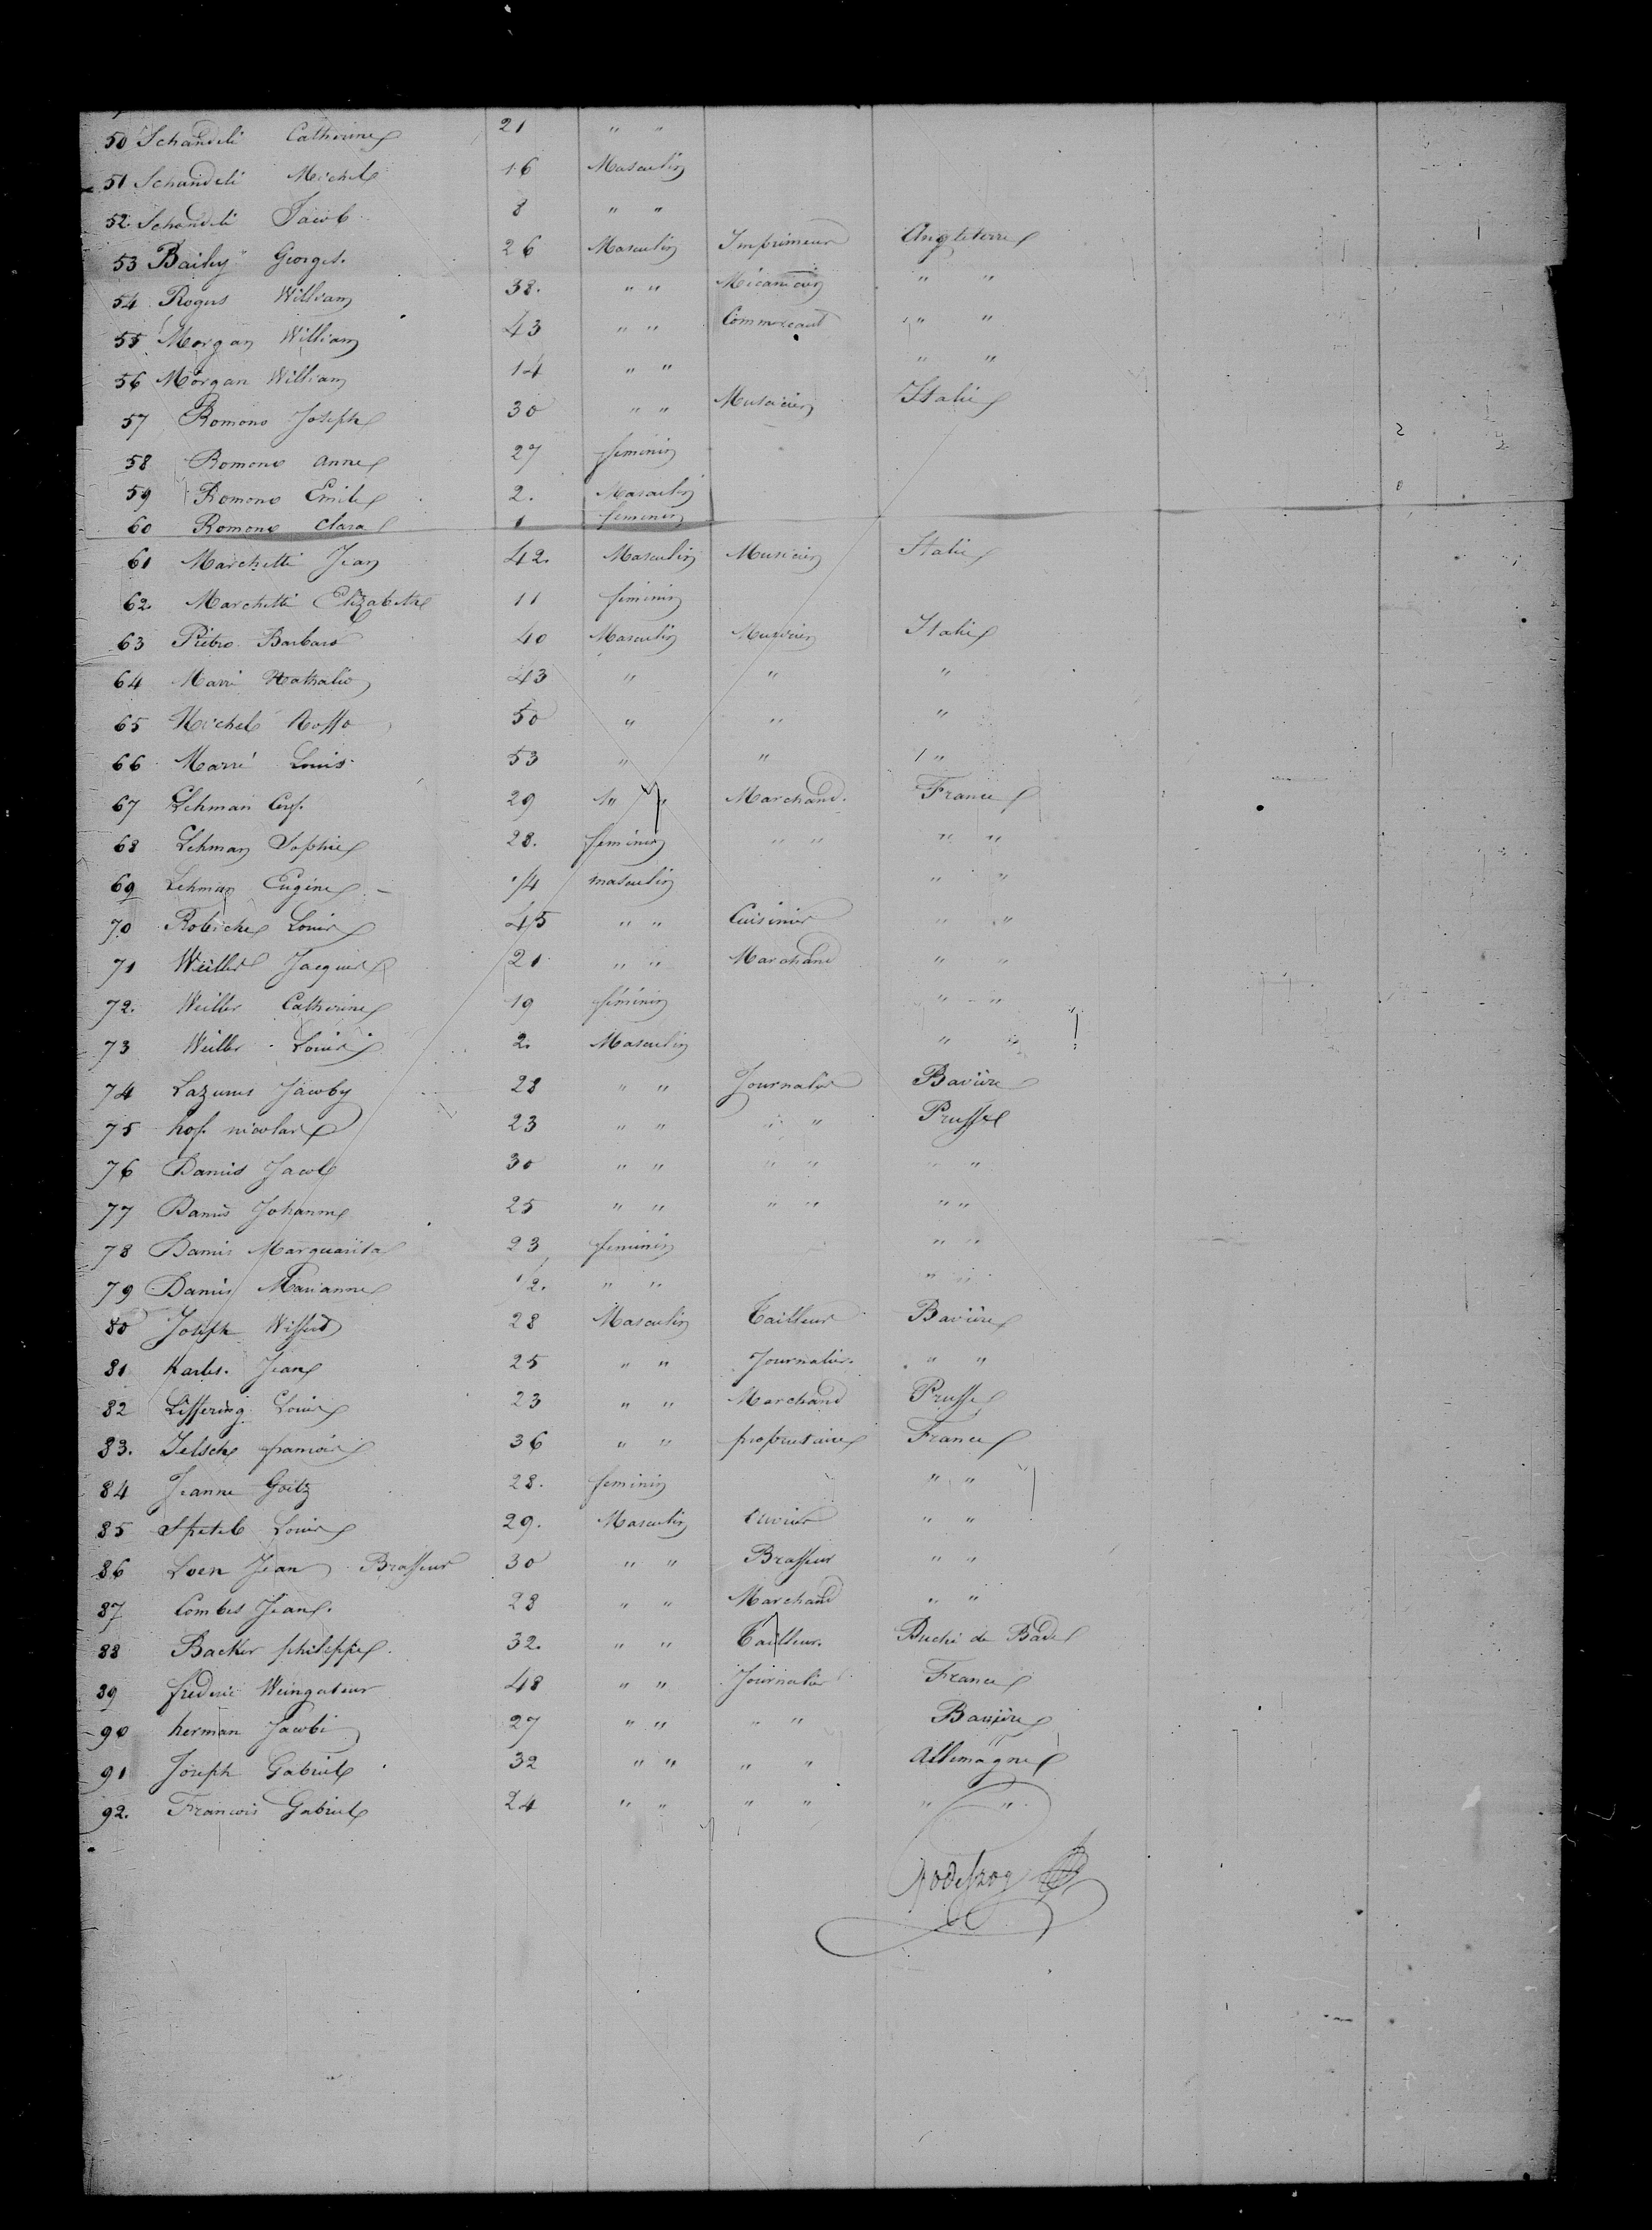 50 Schandeli Catherine 21 " "
51 Schandeli Michel 16 Masculin
52 Schandeli Jacob 8 " "
53 Baily Georges. 26 Masculin Imprimeur Angleterre
54 Rogers William 38. " " Mécanicien " "
55 Morgan William 43 " " Commercant " "
56 Morgan William 14 " " " "
57 Romono Joseph 30 " " Musicien Italie
58 Romono Anne 27 feminin
59 Romono Emile 2. Masculin
60 Romono Clara 1 feminin
61 Marchetti Jean 42. Masculin Musicien Italie
62. Marchetti Elizabeth 11 feminin
63 Pietro Barbaro 40 Masculin Musicien Italie
64 Marri Nathalio 43 " " "
65 Michel Rosso 50 " " "
66 Marré Louis 53 " " "
67 Lehman 29 " " Marchand. France
68 Lehman Sophie 28. feminin " " " "
69 Lehman Eugéne 1/4 masculin " "
70 Robiche Louis 45 " " Cuisinier " "
71 Weiller Jacques 21 " " Marchand " "
72. Weiller Catherine 19 féminin " "
73 Weiller Louis 2. Masculin " "
74 Lazurus Jacoby 28 " " Journalier Bavière
75 hof nicolas 23 " " " " Prusse
76 Damis Jacob 30 " " " " " "
77 Damis Johanne 25 " " " " " "
78 Damis Marguarita 23 feminin " "
79 Damis Marianne 1/2. " " " "
80 Joseph 28 Masculin Tailleur Bavière
81 Karles. Jean 25 " " Journalier. " "
82 Liffering Louis 23 " " Marchand Prusse
83. Jelsch francois 36 " " proprietaire France
84 Jeanne Goetz 28. feminin " "
85 Louis 29. Masculin Ouvrier " "
86 Loen Jean Brasseur 30 " " Brasseur " "
87 Combes Jean. 28 " " Marchand " "
88 Backer philippe. 32. " " Tailleur. Duché de Bade
89 frederic Weingateur 48 " " Journalier France
90 herman Jacobi 27 " " " " Bavière
91 Joseph Gabriel 32 " " " " Allemagne
92. Francois Gabriel 24 " " " " " "